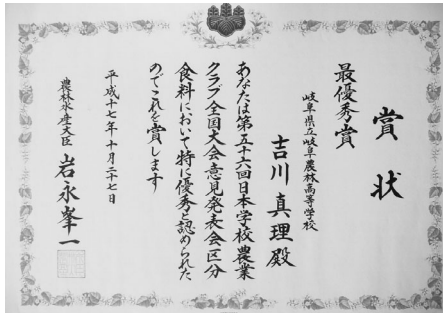 賞状
最優秀賞
岐阜県立岐阜農林高等学校
吉川真理殿
あなたは第五十六回日本学校農業
クラブ全国大会意見発表会区分
食料において特に優秀と認められた
のでこれを賞します
平成十七年十月二十七日
農林水産大臣 岩永峯一